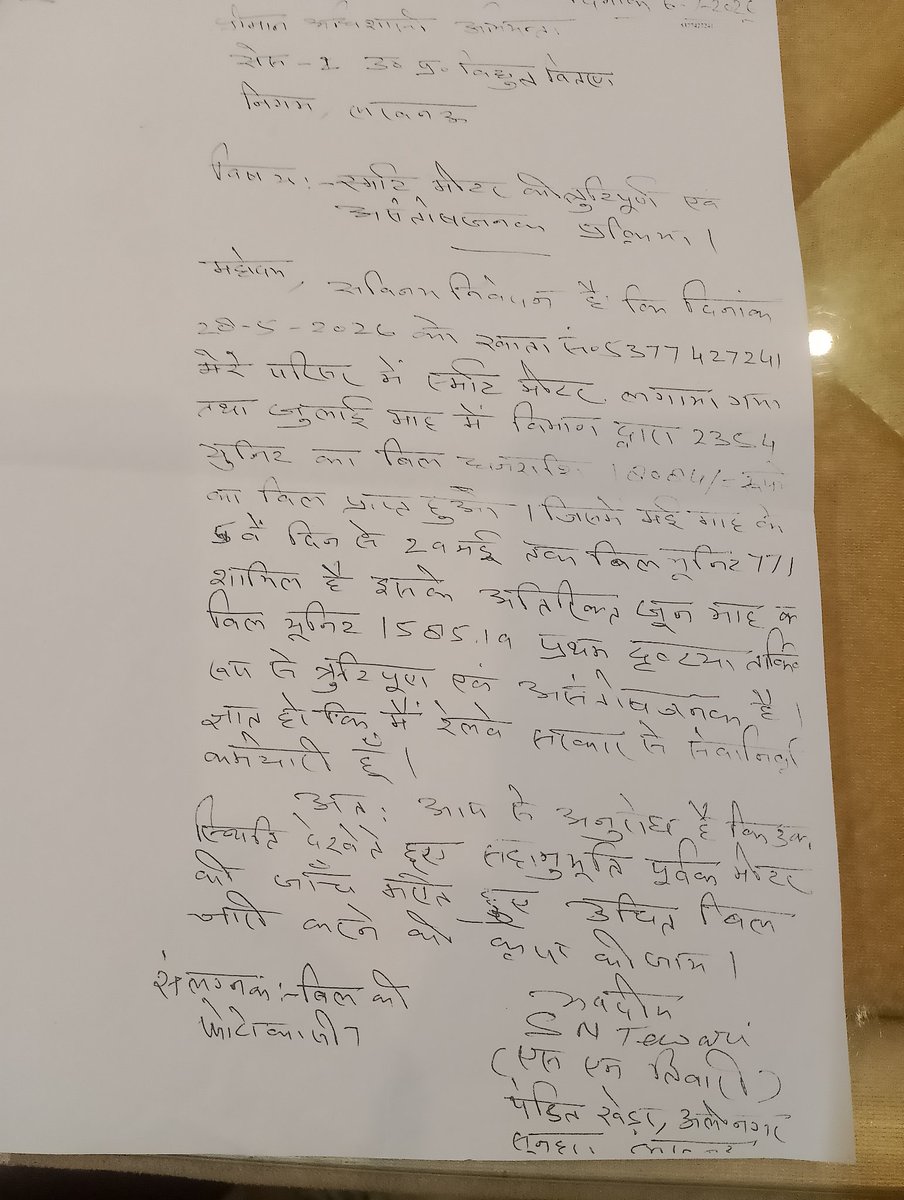 दिनांक 6-7-2026
श्रीमान अधिशासी अभियन्ता
सेस-2 उ० प्र० विद्युत वितरण
निगम, लखनऊ
विषय:- स्मार्ट मीटर की त्रुटिपूर्ण एवं
असंतोषजनक प्रक्रिया।
महोदय,
सविनय निवेदन है कि दिनांक
28-5-2026 को खाता सं० 5377427241
मेरे परिसर में स्मार्ट मीटर लगाया गया
तथा जुलाई माह में विभाग द्वारा 2354
यूनिट का बिल धनराशि 18084/- रूपये
का बिल प्राप्त हुआ। जिसमें मई माह के
5वें दिन से 29 मई तक बिल यूनिट 771
शामिल है इसके अतिरिक्त जून माह क
बिल यूनिट 1585.19 प्रथम दृष्टया
रूप से त्रुटिपूर्ण एवं असंतोषजनक है।
ज्ञात हो कि मैं रेलवे सरकार से सेवानिवृत
कर्मचारी हूँ।
अत: आप से अनुरोध है कि उक्त
स्थिति देखते हुए सहानुभूति पूर्वक मीटर
की जाँच कराते हुए उचित बिल
जारी करने की कृपा की जाय।
संलग्नक:- बिल की
फोटोकापी
भवदीय
S N Tewari
(एस एन तिवारी)
पंडित खेड़ा, अलीनगर
सुनहरा, लखनऊ